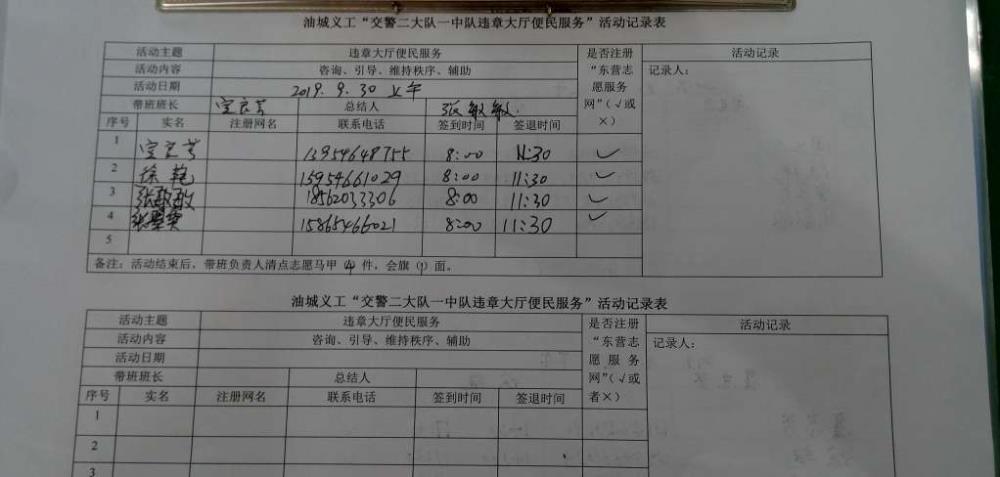 油城义工“交警二大队一中队违章大厅便民服务”活动记录表
活动主题 违章大厅便民服务 是否注册“东营志愿服务网”(√或×) 活动记录
活动内容 咨询、引导、维持秩序、辅助 记录人:
活动日期 2019.9.30 上午
带班班长 总结人 张敏敏
序号 实名 注册网名 联系电话 签到时间 签退时间
1 13954648755 8:00 11:30 ✓
2 徐艳 15954661029 8:00 11:30 ✓
3 张敏敏 18562033306 8:00 11:30 ✓
4 15865466021 8:00 11:30 ✓
5
备注:活动结束后,带班负责人清点志愿马甲(4)件,会旗(1)面。
油城义工“交警二大队一中队违章大厅便民服务”活动记录表
活动主题 违章大厅便民服务 是否注册“东营志愿服务网”(√或者×) 活动记录
活动内容 咨询、引导、维持秩序、辅助 记录人:
活动日期
带班班长 总结人
序号 实名 注册网名 联系电话 签到时间 签退时间
1
2
3